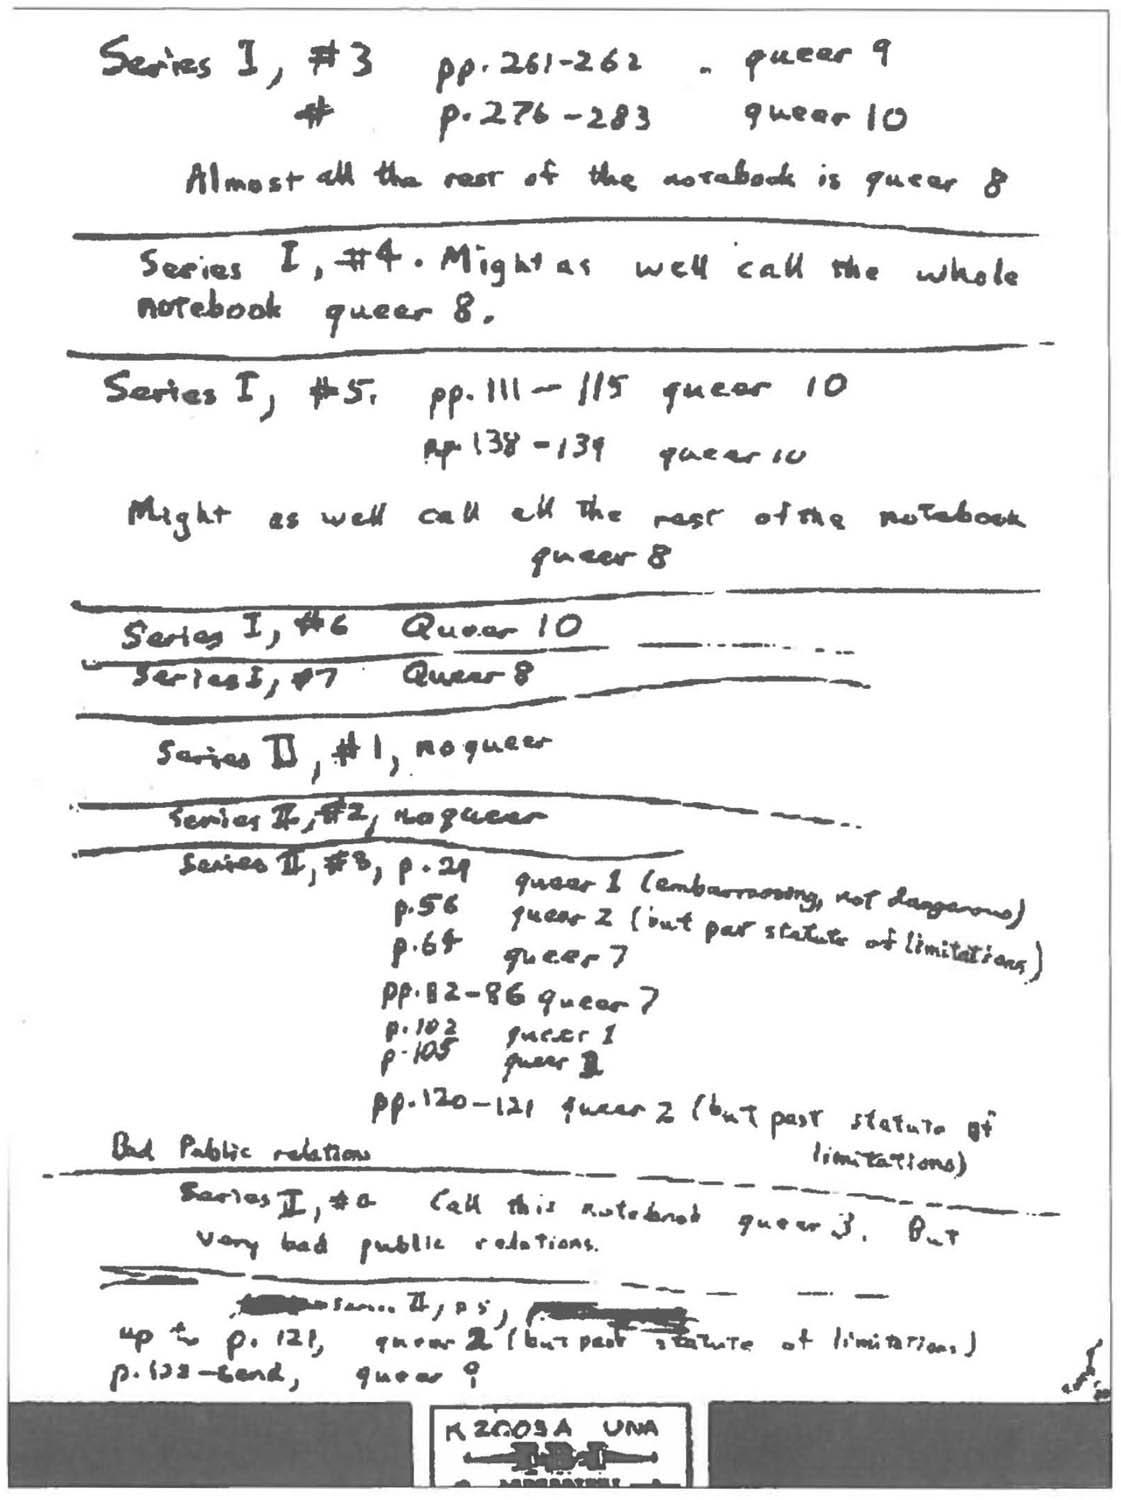 Series I, #3 pp. 261-262 . queer 9
# p. 276-283 queer 10
Almost all the rest of the notebook is queer 8
Series I, #4. Might as well call the whole
notebook queer 8.
Series I, #5. pp. 111-115 queer 10
pp. 138-139 queer 10
Might as well call all the rest of the notebook
queer 8
Series I, #6 Queer 10
Series I, #7 Queer 8
Series II, #1, no queer
Series II, #2, no queer
Series II, #3, p. 29 queer 1 (embarrassing, not dangerous)
p. 56 queer 2 (but past statute of limitations)
p. 64 queer 7
pp. 82-86 queer 7
p. 102 queer 1
p. 105 queer
pp. 120-121 queer 2 (but past statute of
limitations)
Bad Public relations
Series II, Call this notebook queer 3. But
very bad public relations.
Series II, #5,
up to p. 121, queer 2 (but past statute of limitations)
end, queer 9
K2003A UNA